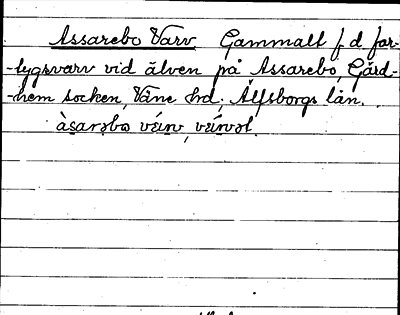 Assarebo Varv Gammalt f d far-
-tygsvarv vid älven på Assarebo, Gärd-
-hem socken, Väne hrd; Älfsborgs län.
àsarəbo vé̄rv, vé̄rvət.